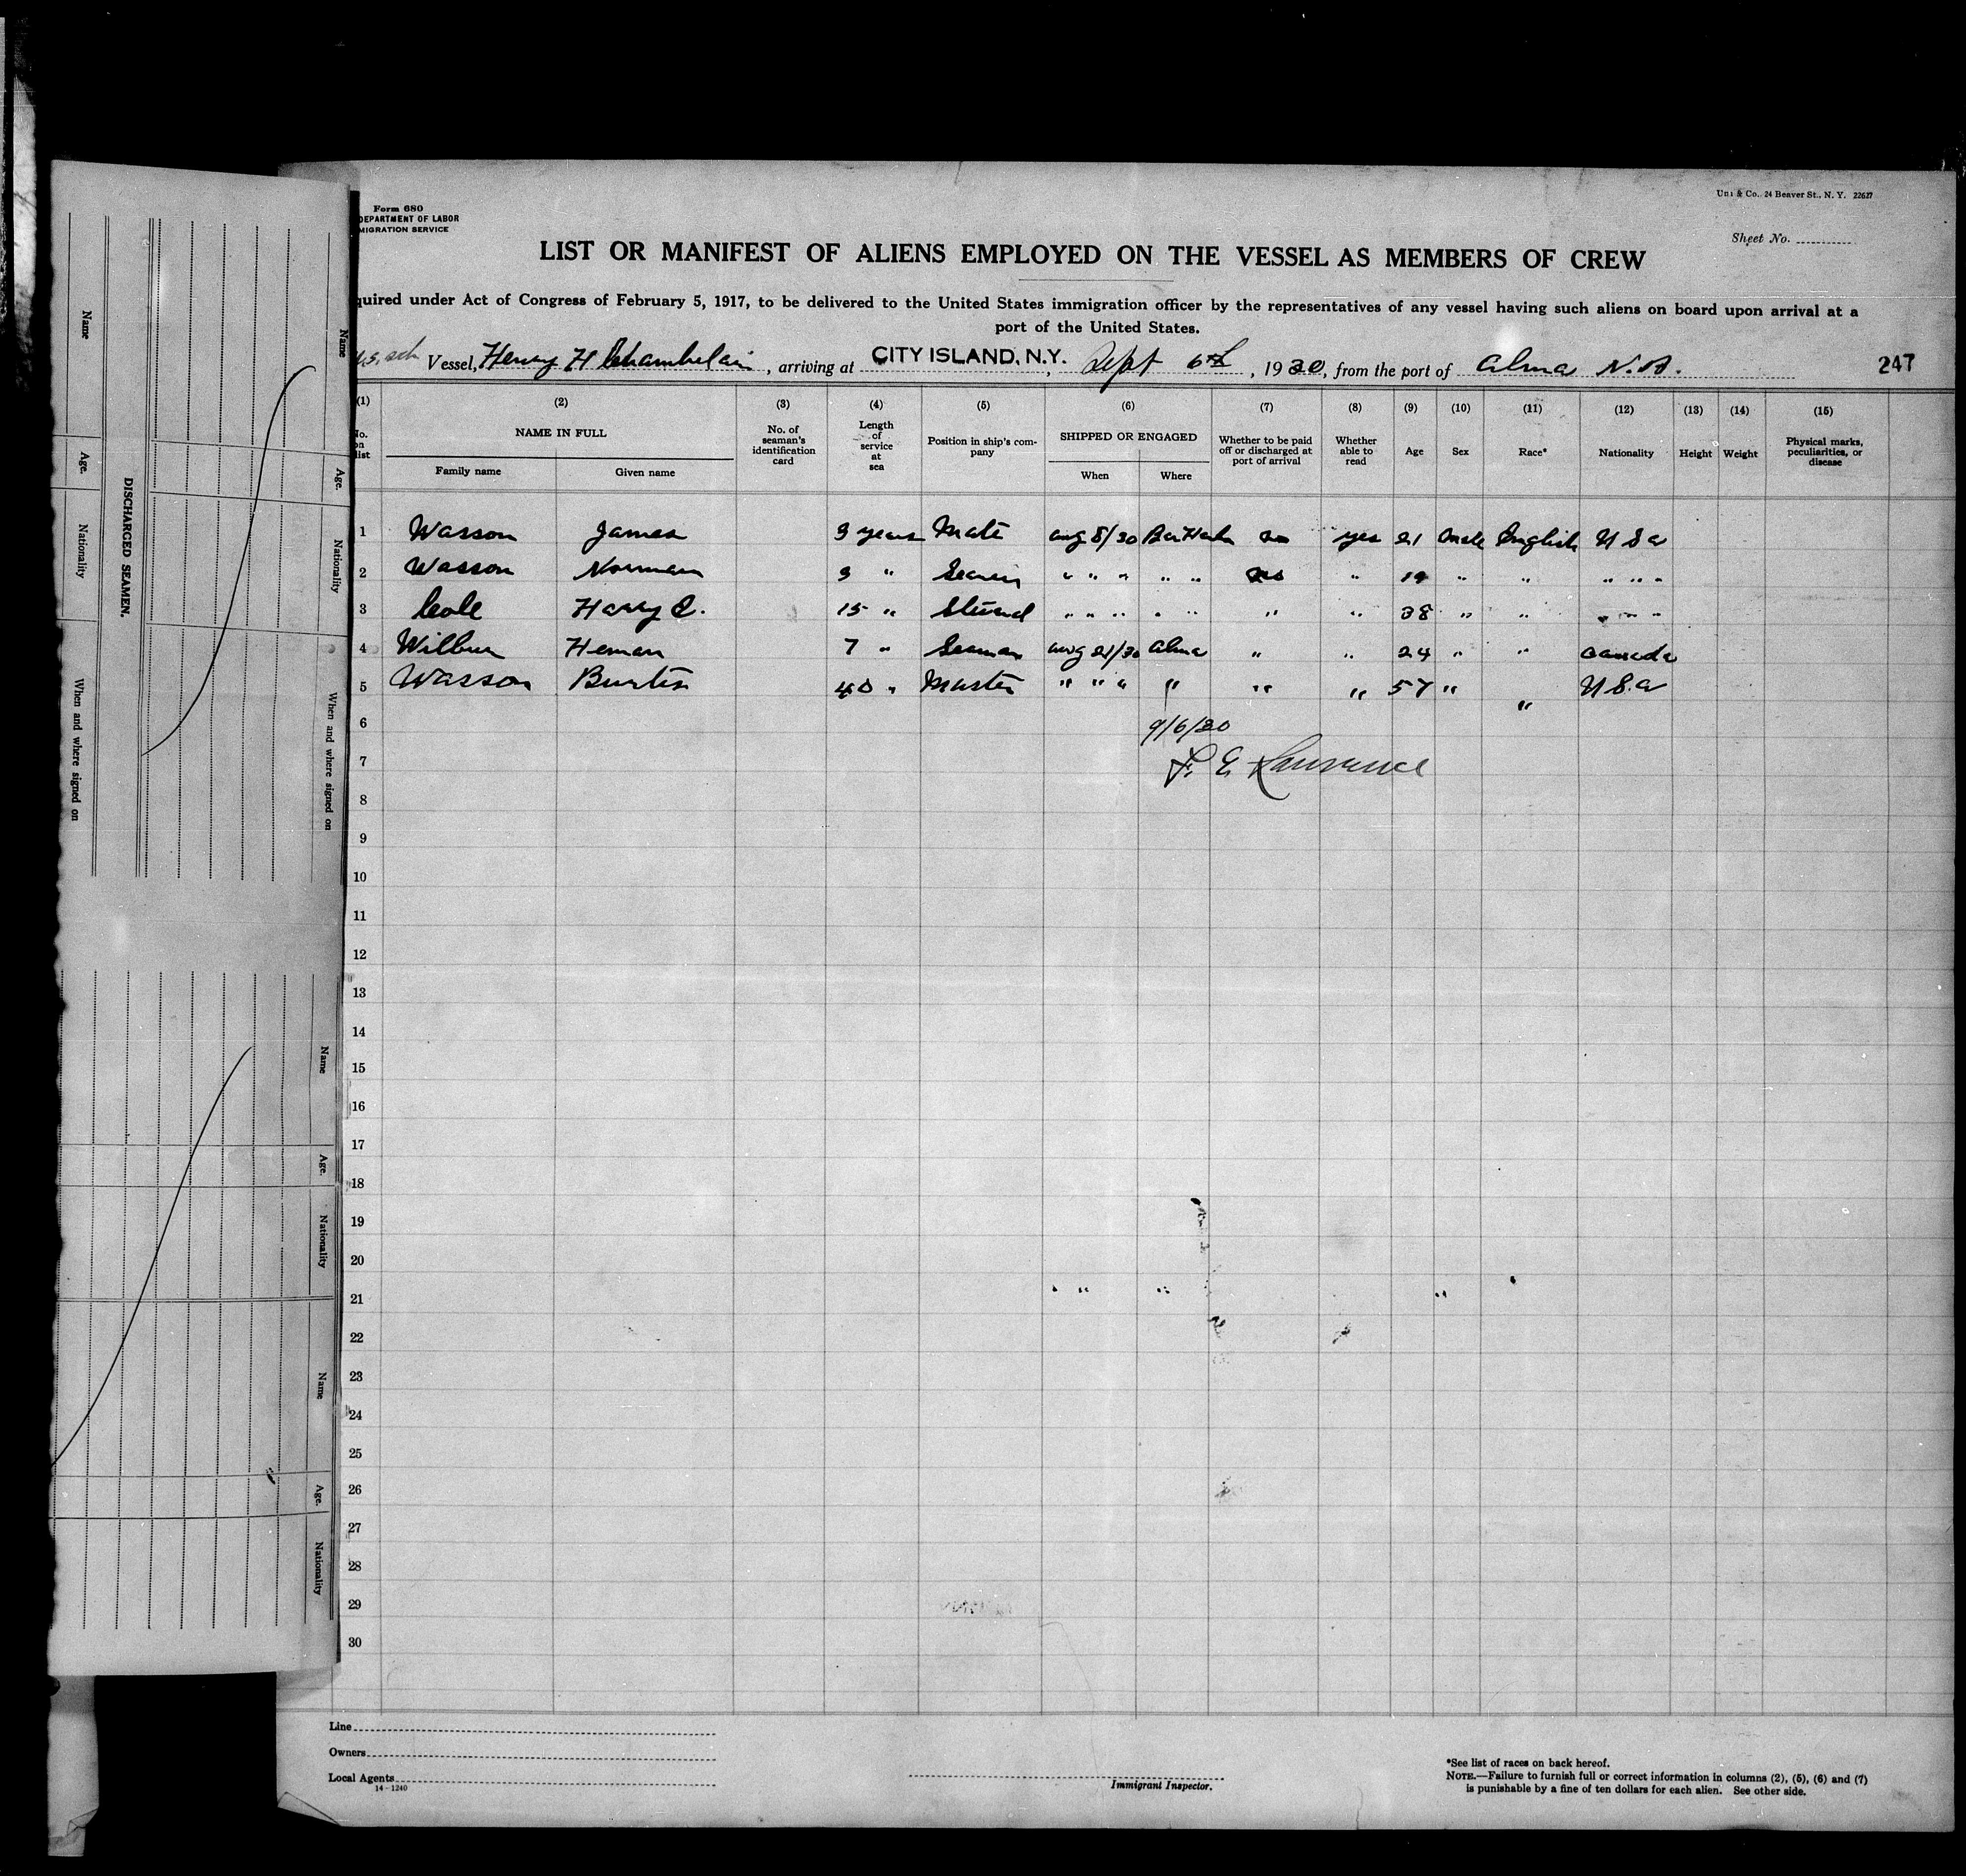 Form 680
DEPARTMENT OF LABOR
MIGRATION SERVICE
Uni & Co., 24 Beaver St., N. Y. 22627
Sheet No.
LIST OR MANIFEST OF ALIENS EMPLOYED ON THE VESSEL AS MEMBERS OF CREW
quired under Act of Congress of February 5, 1917, to be delivered to the United States immigration officer by the representatives of any vessel having such aliens on board upon arrival at a
port of the United States.
U.S. sch Vessel, Henry H Chamberlain, arriving at CITY ISLAND, N.Y., Sept 6th, 1930, from the port of Alma N.B. 247
(1) (2) (3) (4) (5) (6) (7) (8) (9) (10) (11) (12) (13) (14) (15)
No. on list NAME IN FULL Family name Given name No. of seaman's identification card Length of service at sea Position in ship's company SHIPPED OR ENGAGED When Where Whether to be paid off or discharged at port of arrival Whether able to read Age Sex Race* Nationality Height Weight Physical marks, peculiarities, or disease
1 Wasson James 3 years Mate Aug 8/30 no yes 21 male English U S A
2 Wasson Norman 3 " " " " " " no " 19 " " " " "
3 Cole Harry C. 15 " Steward " " " " " " " 38 " " " " "
4 Wilbur Heman 7 " Seaman Aug 21/30 Alma " " 24 " " Canada
5 Wasson Burtis 40 " Master " " " " " " 57 " " U.S.A
6 9/6/30
7 F. E. Lawrence
8
9
10
11
12
13
14
15
16
17
18
19
20
21
22
23
24
25
26
27
28
29
30
Line
Owners
Local Agents
14—1240
Immigrant Inspector.
*See list of races on back hereof.
NOTE.—Failure to furnish full or correct information in columns (2), (5), (6) and (7)
is punishable by a fine of ten dollars for each alien. See other side.
DISCHARGED SEAMEN.
Name Age. Nationality When and where signed on
Name Age. Nationality When and where signed on
Name Age. Nationality
Name Age. Nationality